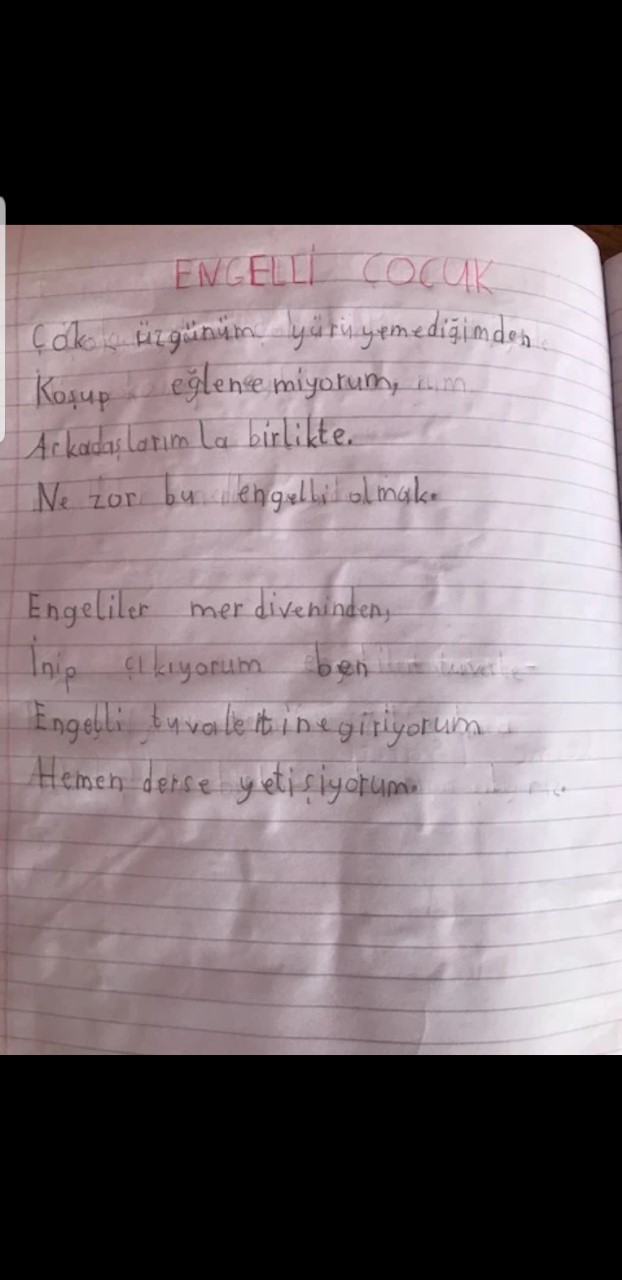 ENGELLİ ÇOCUK
Çok üzgünüm yürüyemediğimden
Koşup eğlenemiyorum,
Arkadaşlarımla birlikte.
Ne zor bu engelli olmak.
Engeliler merdiveninden,
İnip çıkıyorum ben
Engelli tuvaletine giriyorum
Hemen derse yetişiyorum.